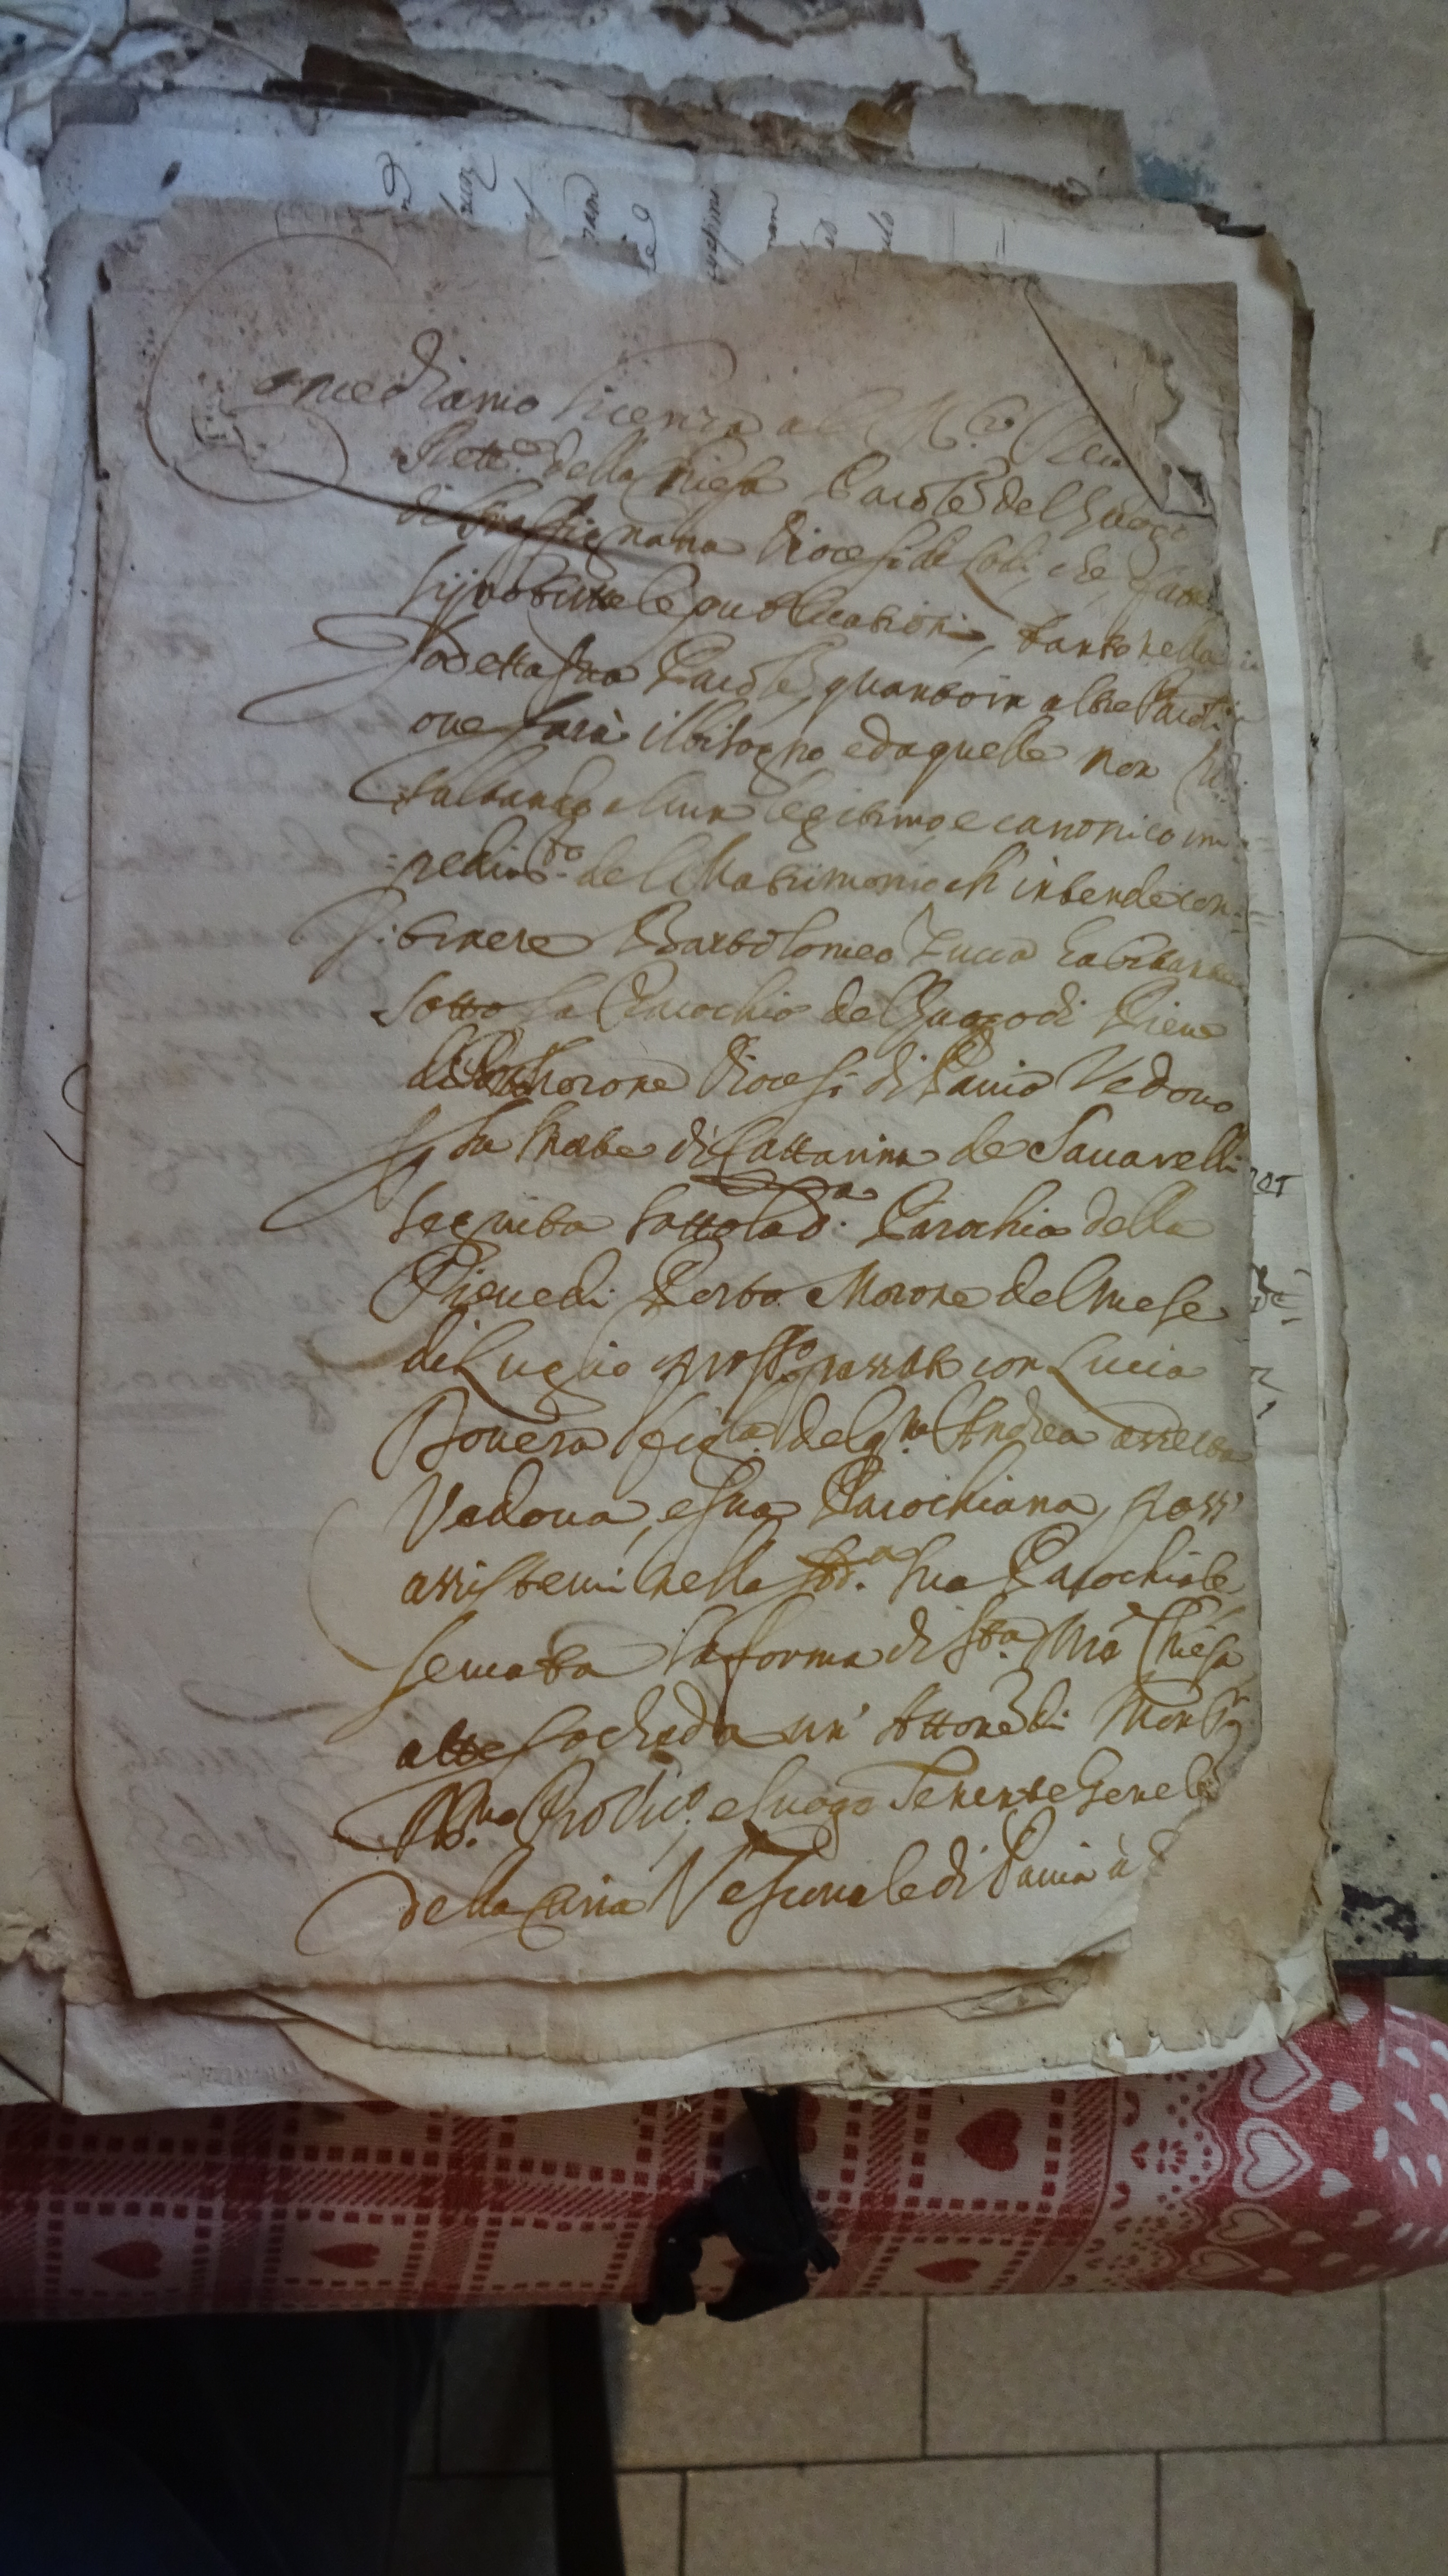 Concediamo licenza al M.to Reu
Rett.e della Chiesa Paro.le del Luogo
di Graffignana Diocesi di Lodi, che, fatte
le publicationi, tanto nella
sodetta sua Paro.le, quanto in altre Paro.li
oue sarà il bisogno, e da quelle non ri=
=sultando alcun legitimo, e canonico im=
=pedim.to del Matrimonio ch'intende con=
=trahere Bartolomeo Zucca habitante
sotto la Parochia del Luogo di Pieue
di Porto Morone Diocesi di Pauia Vedouo
per la morte di Cattarina de Sauarelli
seguita sotto la d.a Parochia della
Pieue di Porto Morone del mese
di Luglio pross.o passato con Lucia
Bouera figl.a del q.m Andrea
Vedoua, e sua Parochiana, possi
assisterui nella sud.a sua Parochiale
seruata la forma di S.ta M.a Chiesa
atteso che da un' Attone di Mons.r
Ill.mo Prouic.o, e luogo Tenente Gene.le
della Curia Vescouale di Pauia à